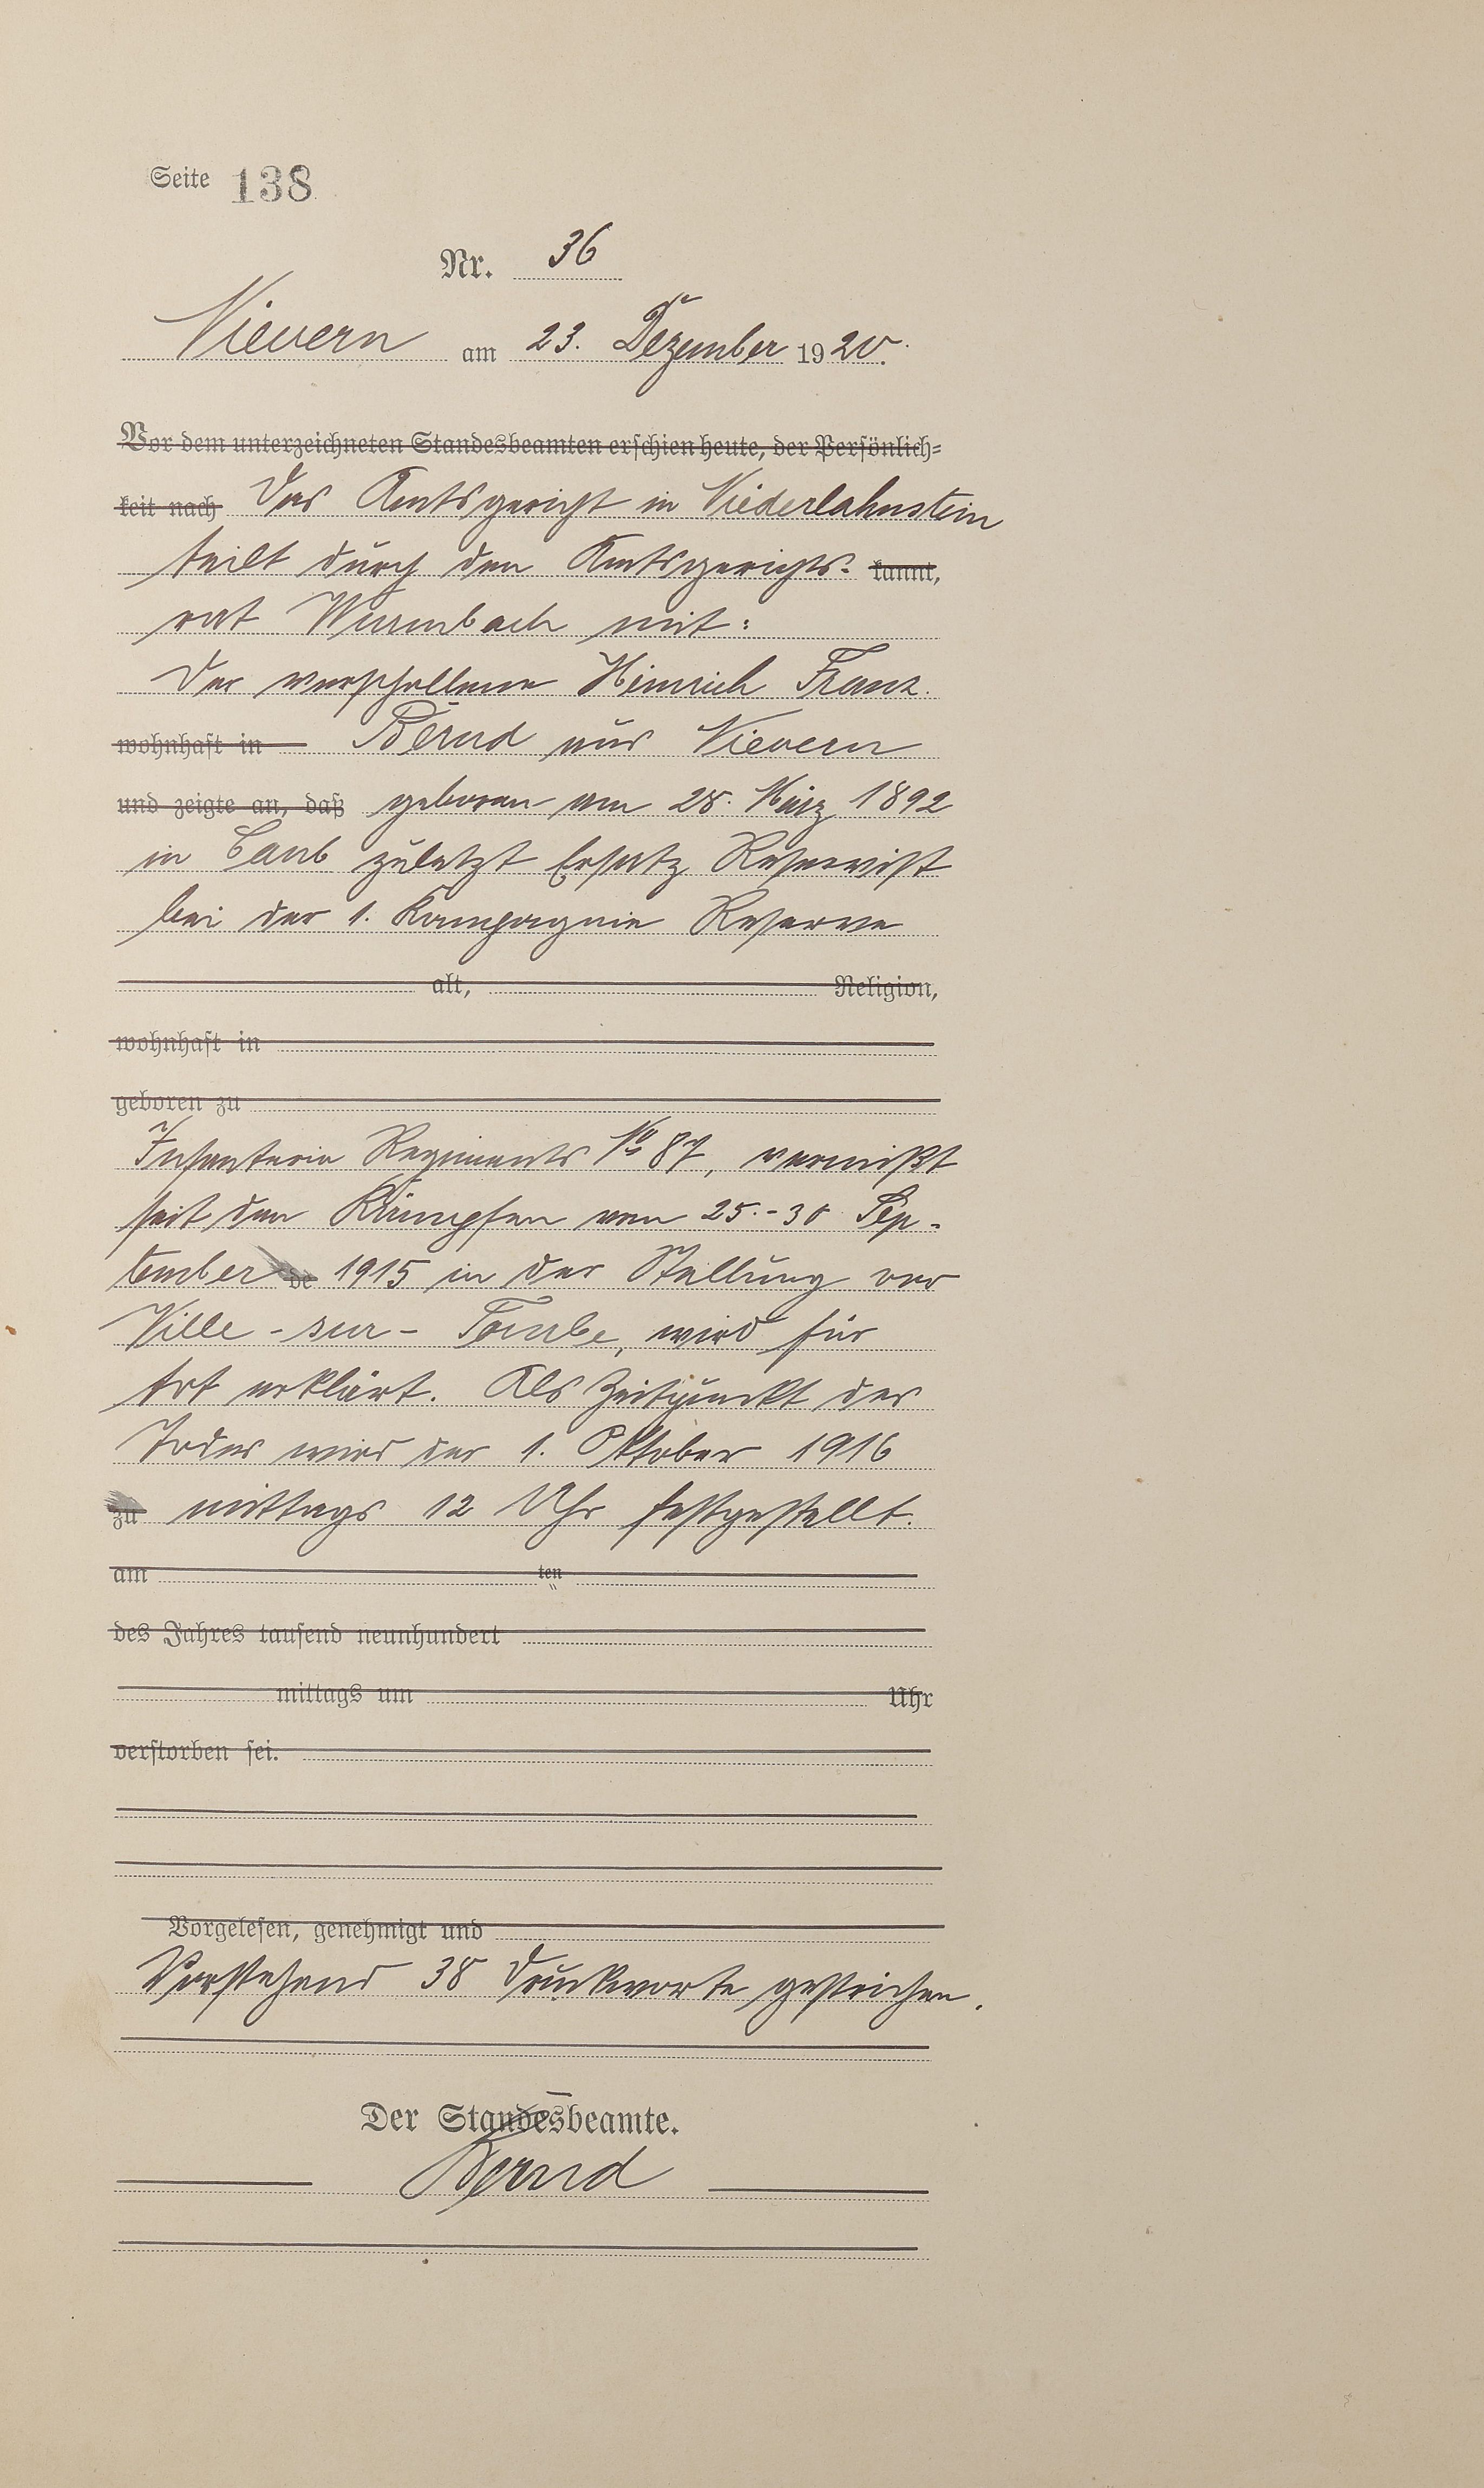 Seite 138
Nr. 36
Nievern am 23. Dezember 1920.
Vor dem unterzeichneten Standesbeamten erschien heute, der Persönlich=
keit nach Das Amtsgericht in Niederlahnstein
teilt durch den Amtsgerichts- kannt,
rat Wurmbach mit:
Der verschollene Heinrich Franz
wohnhaft in Bernd aus Nievern
und zeigte an, daß geboren am 28. März 1892
in Caub zuletzt Ersatz Reservist
bei der 1. Kompagnie Reserve
alt, Religion,
wohnhaft in
geboren zu
Infanterie Regiments No 87, vermißt
seit den Kämpfen vom 25.-30 Sep-
tember de 1915 in der Stellung vor
Ville-sur-Tourbe, wird für
tot erklärt. Als Zeitpunkt des
Todes wird der 1. Oktober 1916
zu mittags 12 Uhr festgestellt.
am ten
des Jahres tausend neunhundert
mittags um Uhr
verstorben sei.
Vorgelesen, genehmigt und
Vorstehend 38 Druckworte gestrichen.
Der Standesbeamte.
Bernd